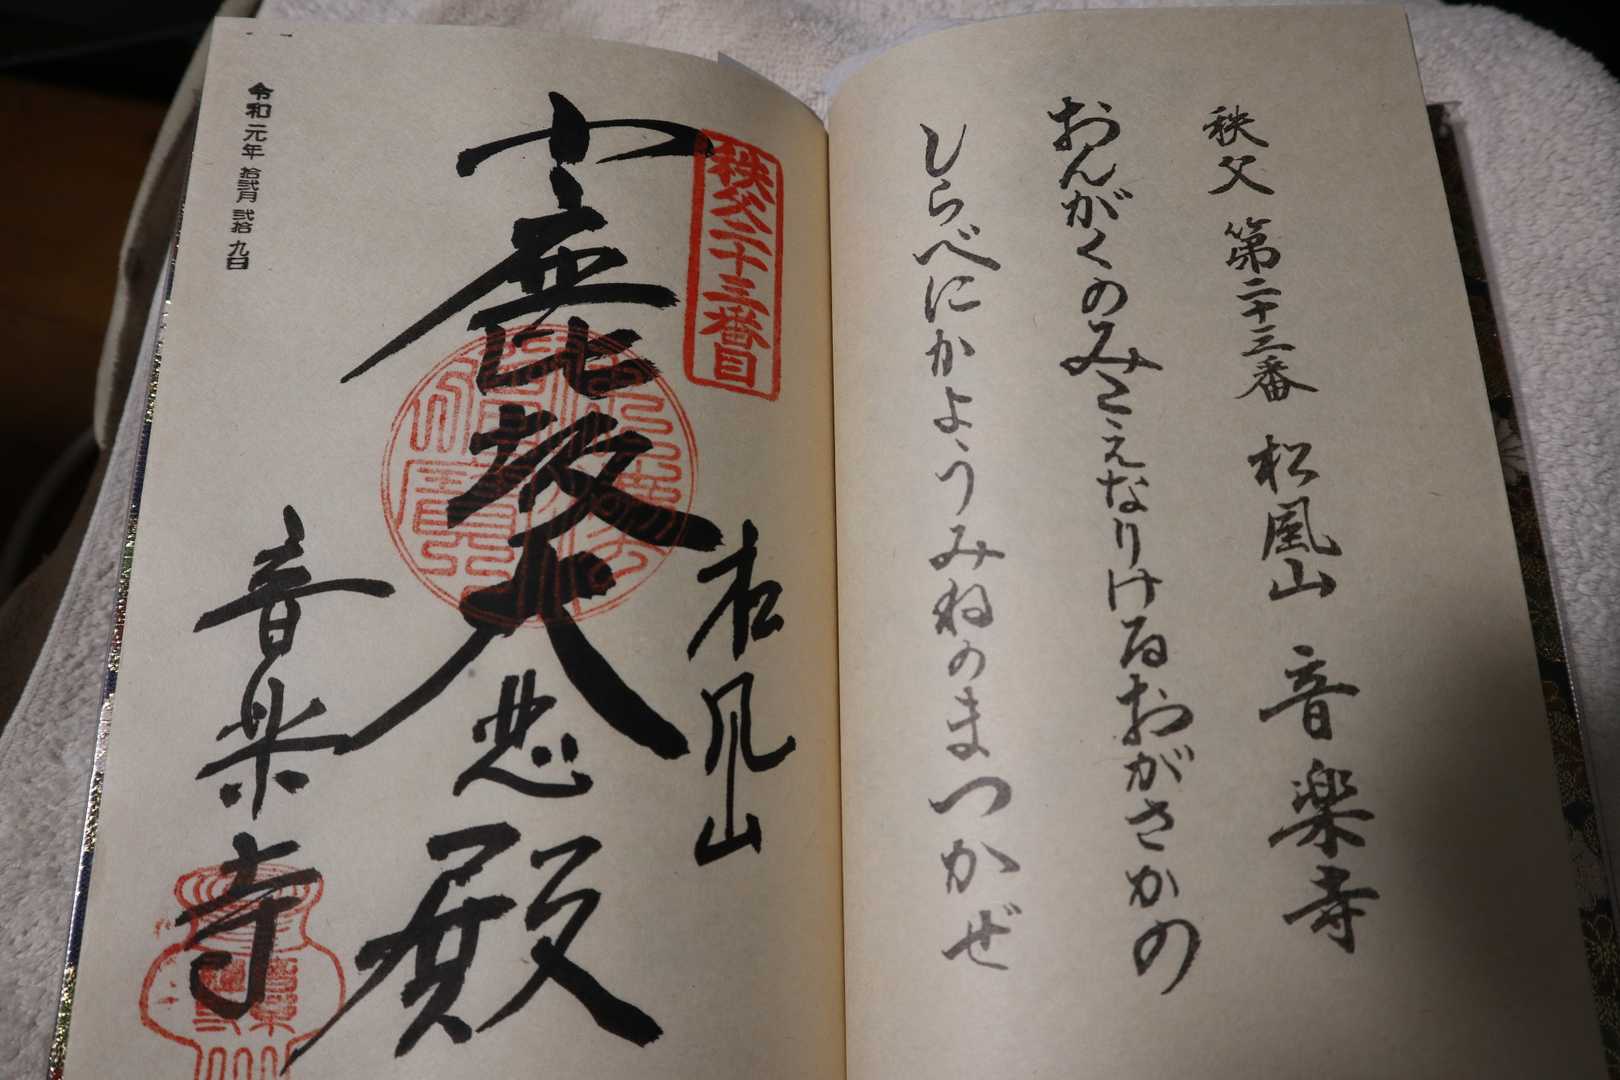 秩父 第二十三番 松風山 音楽寺
おんがくのみこえなりけるおがさかの
しらべにかようみねのまつかぜ
秩父二十三番目
松風山
小鹿坂大悲殿
音楽寺
令和元年 拾弐月 弐拾九日